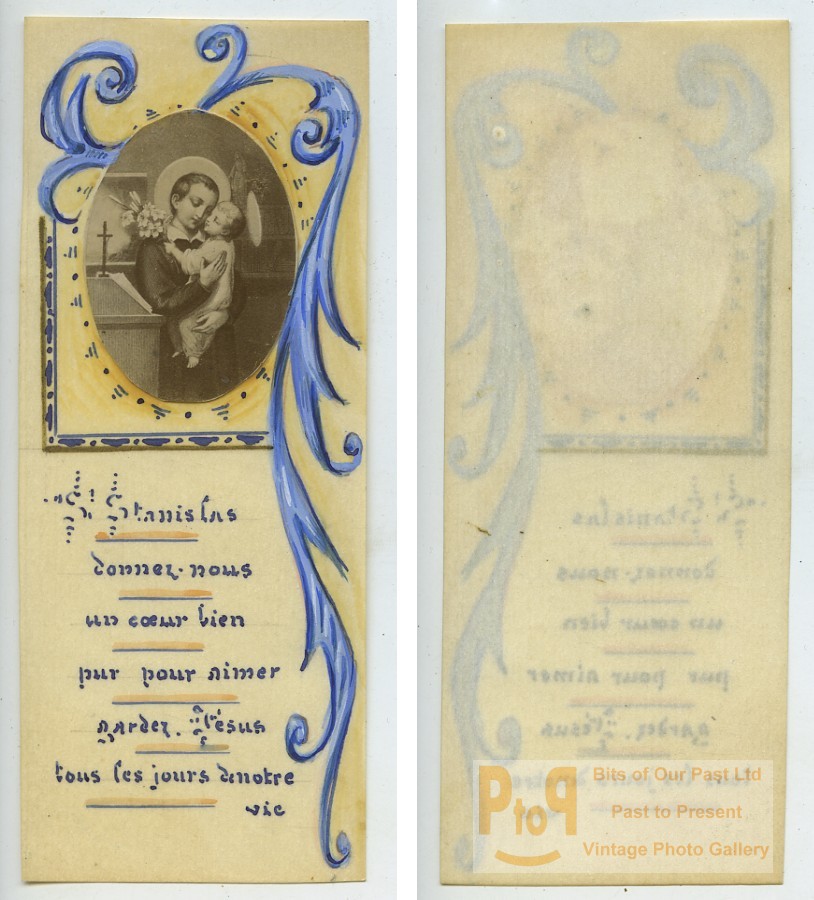 St Stanislas
donnez-nous
un cœur bien
pur pour aimer
garder. Jésus
tous les jours denotre
vie
PtoP
Bits of Our Past Ltd
Past to Present
Vintage Photo Gallery